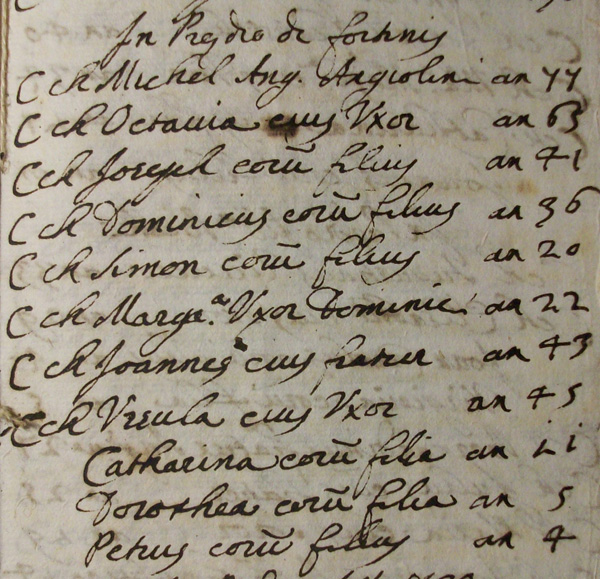 In Predio de fortinis
C ch Michel Ang. Angiolini an 77
C ch Octauia eius Vxor an 63
C ch Joseph eorū filius an 41
C ch Dominicus eorū filius an 36
C ch Simon eorū filius an 20
C ch Marga.a Vxor Dominici an 22
C ch Joannes eius frater an 43
C ch Vrsula eius Vxor an 45
Catharina eorū filia an 11
Dorothea eorū filia an 5
Petrus eorū filius an 4